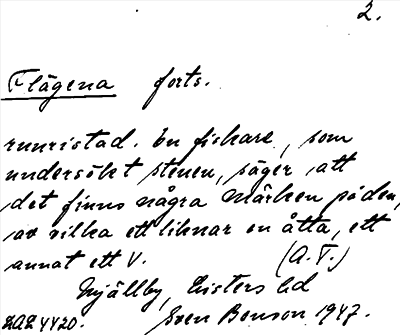 2.
Flägena forts.
runristad. En fiskare, som
undersökt stenen, säger att
det finns några märken på den,
av vilka ett liknar en åtta, ett
annat ett V. (A.T.)
Mjällby, Listers hd
Sven Benson 1947.